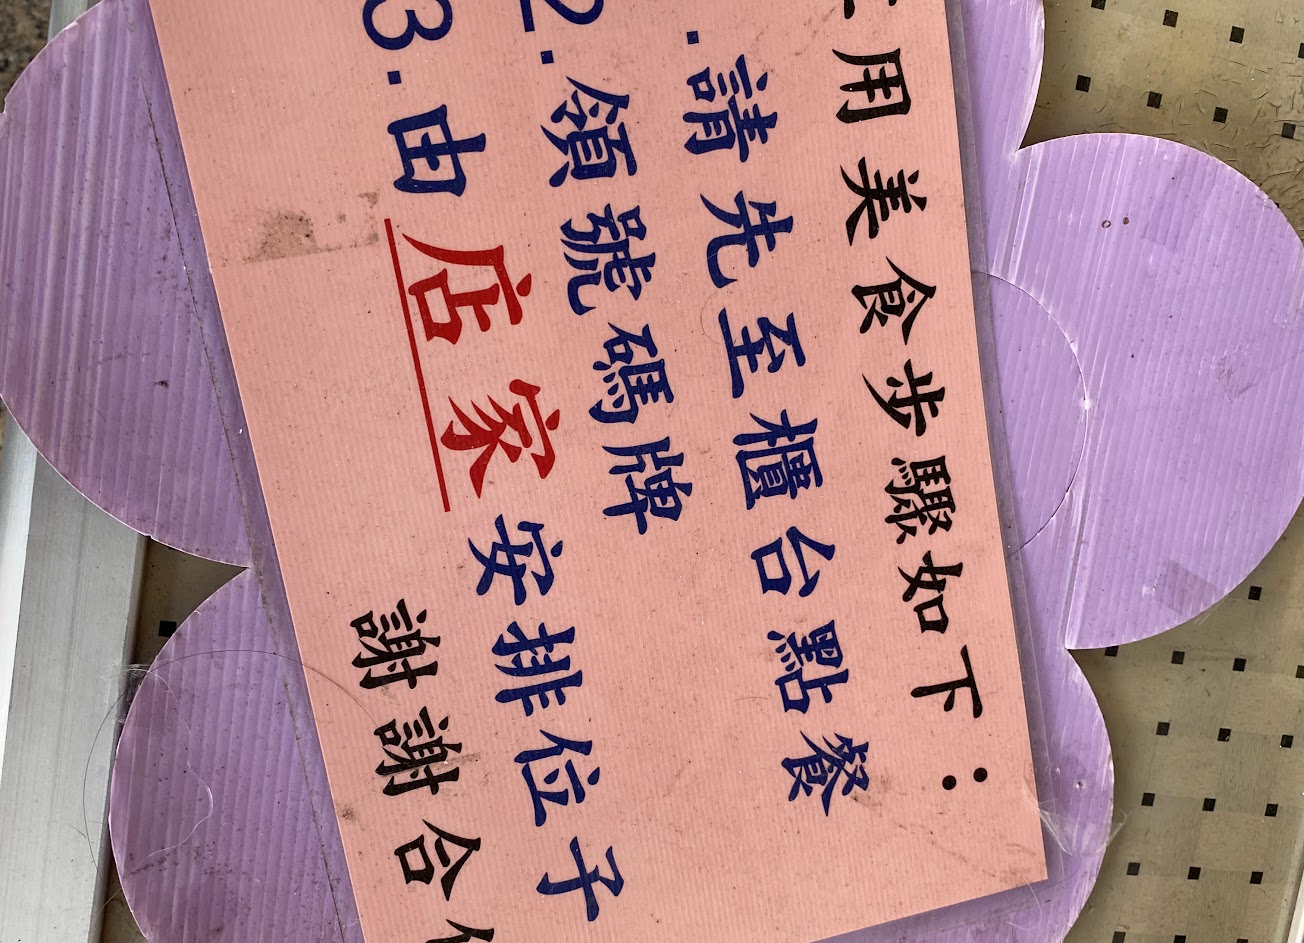 用美食步驟如下:
.請先至櫃台點餐
2.領號碼牌
3.由店家安排位子
謝謝合